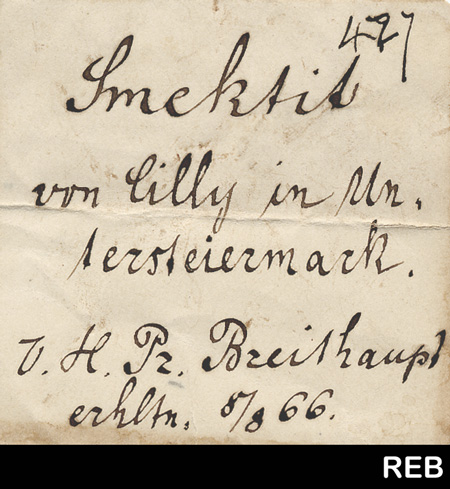 427
Smektit
von Cilly in Un.
tersteiermark.
V. H. Pr. Breithaupt
erhltn. 8/8 66.
REB